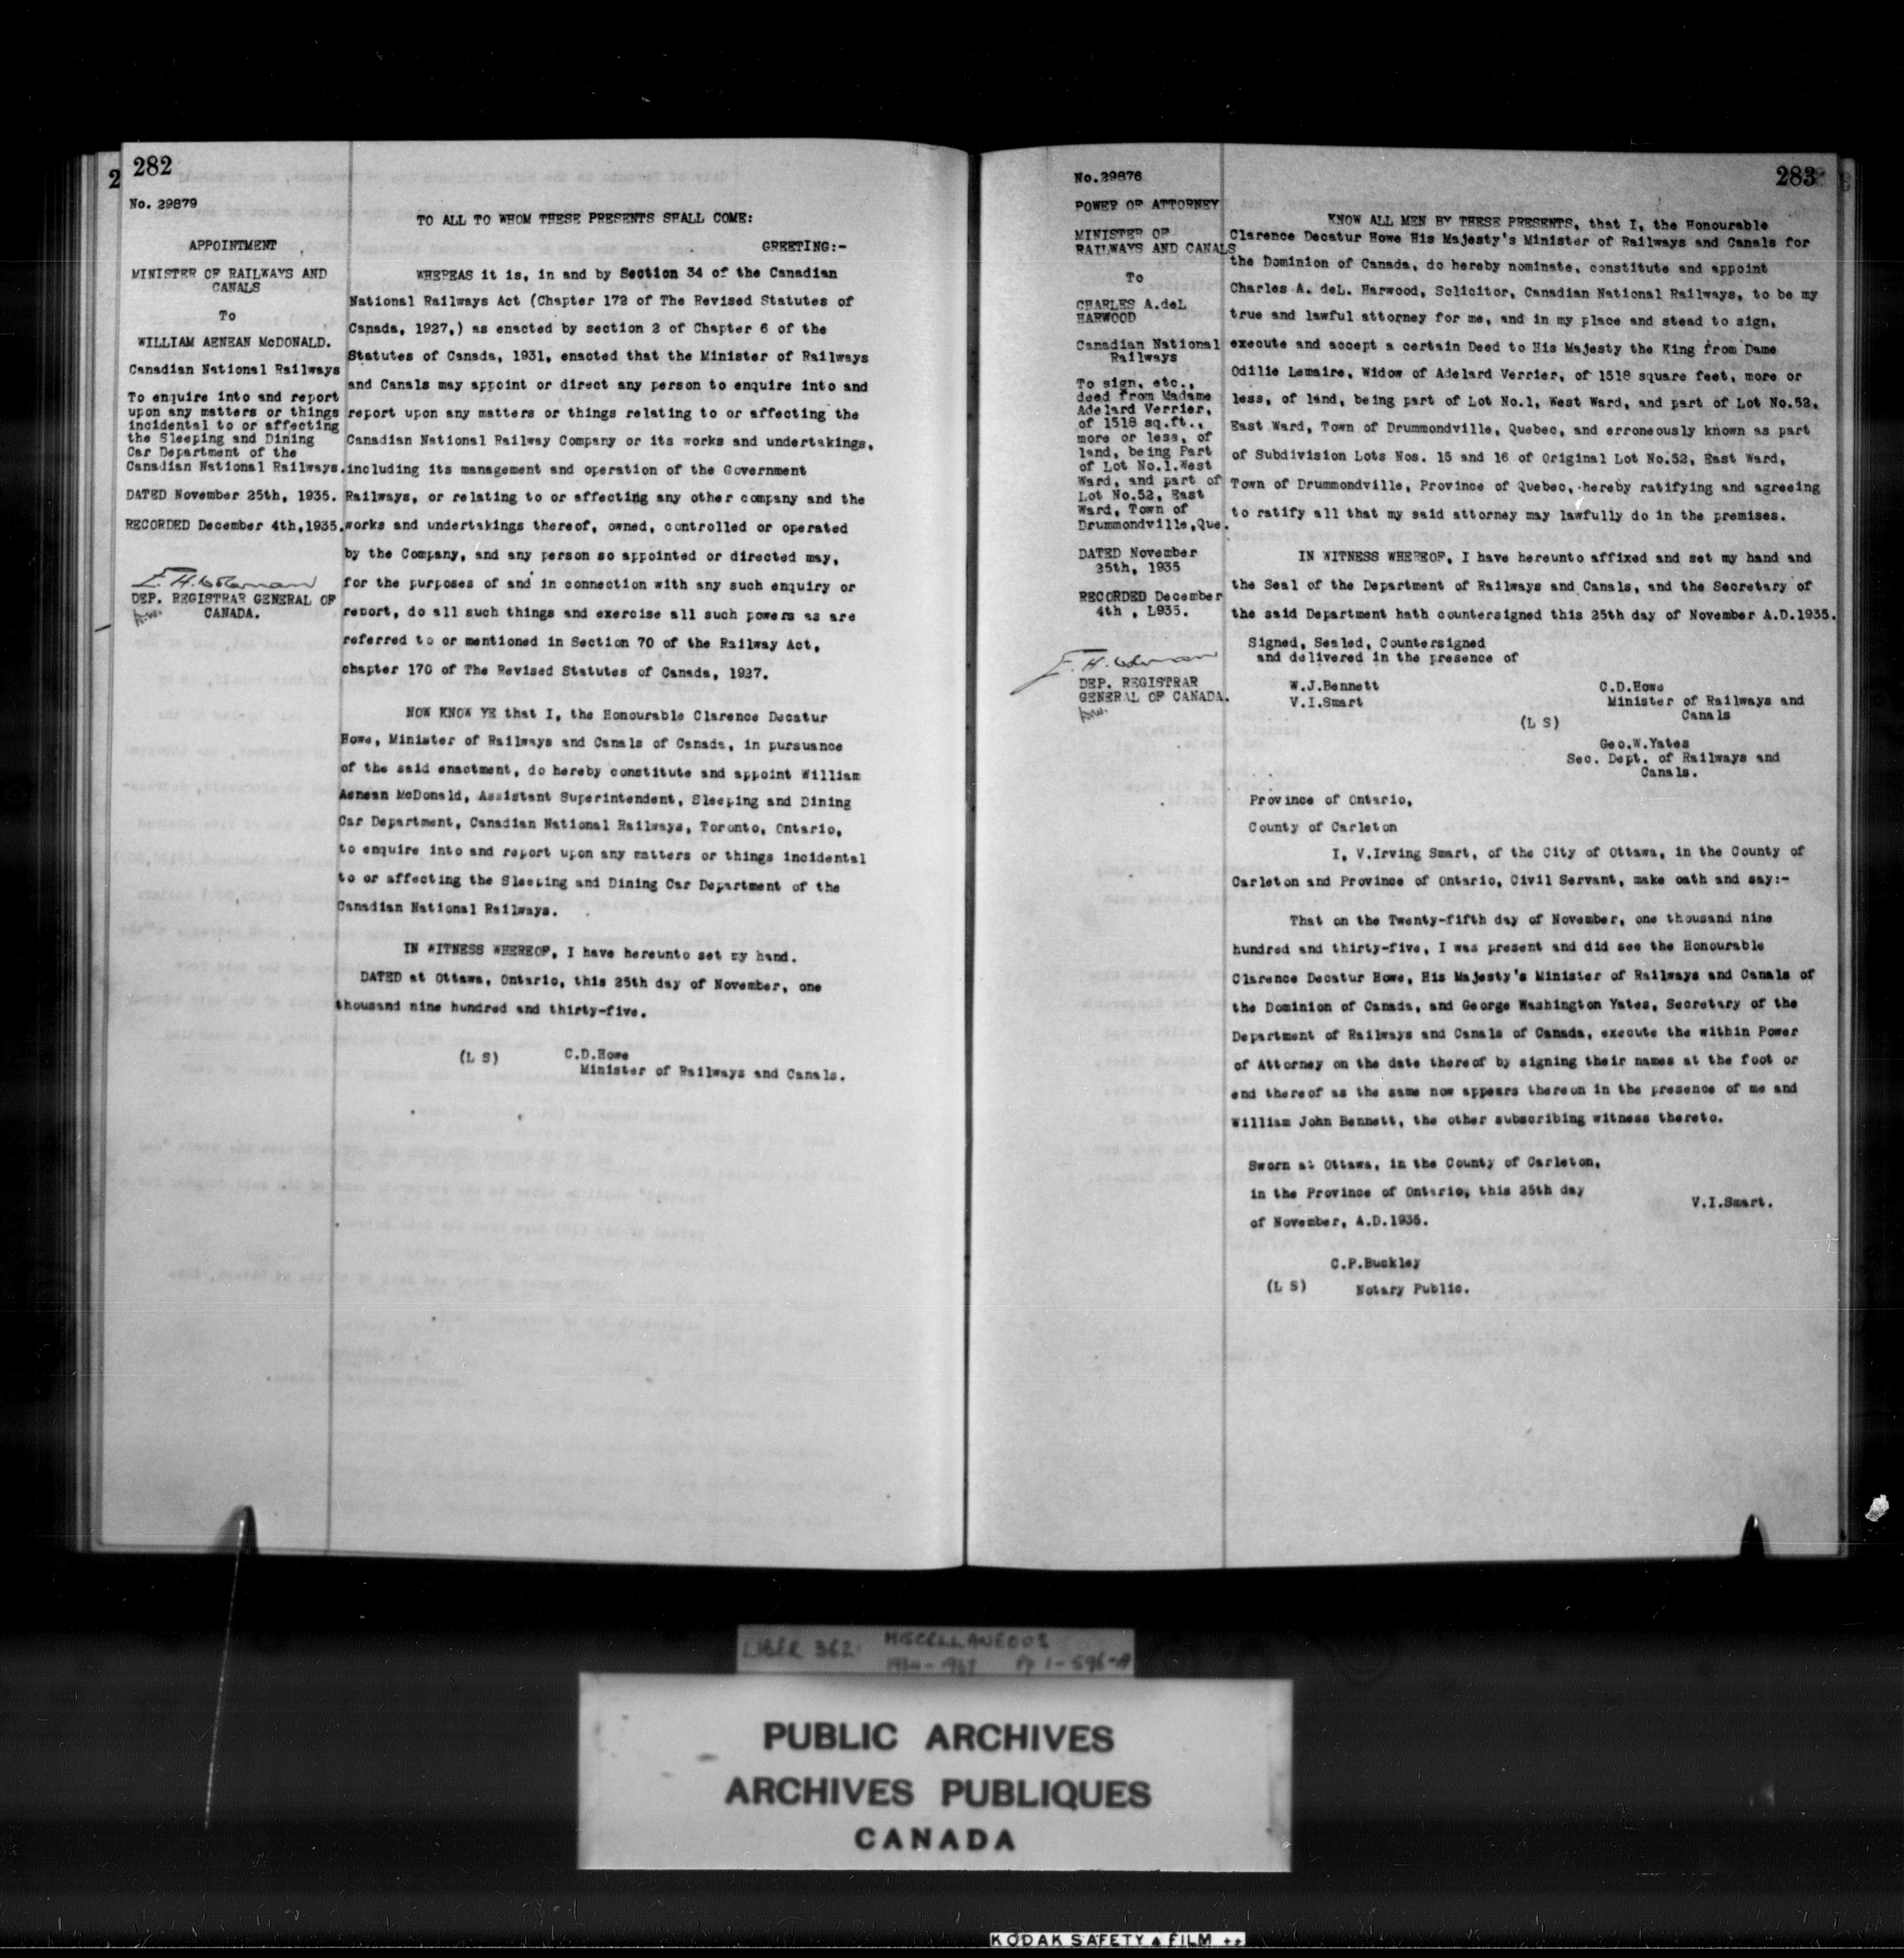 282
2
No. 29879
APPOINTMENT
MINISTER OF RAILWAYS AND
CANALS
To
WILLIAM AENEAN McDONALD.
Canadian National Railways
To enquire into and report
upon any matters or things
incidental to or affecting
the Sleeping and Dining
Car Department of the
Canadian National Railways.
DATED November 25th, 1935.
RECORDED December 4th,1935.
DEP. REGISTRAR GENERAL OF
CANADA.
TO ALL TO WHOM THESE PRESENTS SHALL COME:
GREETING:-
WHEREAS it is, in and by Section 34 of the Canadian
National Railways Act (Chapter 172 of The Revised Statutes of
Canada, 1927,) as enacted by section 2 of Chapter 6 of the
Statutes of Canada, 1931, enacted that the Minister of Railways
and Canals may appoint or direct any person to enquire into and
report upon any matters or things relating to or affecting the
Canadian National Railway Company or its works and undertakings,
including its management and operation of the Government
Railways, or relating to or affecting any other company and the
works and undertakings thereof, owned, controlled or operated
by the Company, and any person so appointed or directed may,
for the purposes of and in connection with any such enquiry or
report, do all such things and exercise all such powers as are
referred to or mentioned in Section 70 of the Railway Act,
chapter 170 of The Revised Statutes of Canada, 1927.
NOW KNOW YE that I, the Honourable Clarence Decatur
Howe, Minister of Railways and Canals of Canada, in pursuance
of the said enactment, do hereby constitute and appoint William
Aenean McDonald, Assistant Superintendent, Sleeping and Dining
Car Department, Canadian National Railways, Toronto, Ontario,
to enquire into and report upon any matters or things incidental
to or affecting the Sleeping and Dining Car Department of the
Canadian National Railways.
IN WITNESS WHEREOF, I have hereunto set my hand.
DATED at Ottawa, Ontario, this 25th day of November, one
thousand nine hundred and thirty-five.
(L S) C.D.Howe
Minister of Railways and Canals.
283
No.29876
POWER OF ATTORNEY
MINISTER OF
RAILWAYS AND CANALS
To
CHARLES A.deL
HARWOOD
Canadian National
Railways
To sign, etc.,
deed from Madame
Adelard Verrier,
of 1518 sq.ft.,
more or less, of
land, being Part
of Lot No.1.West
Ward, and part of
Lot No.52, East
Ward, Town of
Drummondville,Que.
DATED November
25th, 1935
RECORDED December
4th , L935.
DEP. REGISTRAR
GENERAL OF CANADA.
KNOW ALL MEN BY THESE PRESENTS, that I, the Honourable
Clarence Decatur Howe His Majesty's Minister of Railways and Canals for
the Dominion of Canada, do hereby nominate, constitute and appoint
Charles A. deL. Harwood, Solicitor, Canadian National Railways, to be my
true and lawful attorney for me, and in my place and stead to sign,
execute and accept a certain Deed to His Majesty the King from Dame
Odilie Lemaire, Widow of Adelard Verrier, of 1518 square feet, more or
less, of land, being part of Lot No.1, West Ward, and part of Lot No.52,
East Ward, Town of Drummondville, Quebec, and erroneously known as part
of Subdivision Lots Nos. 15 and 16 of Original Lot No.52, East Ward,
Town of Drummondville, Province of Quebec, hereby ratifying and agreeing
to ratify all that my said attorney may lawfully do in the premises.
IN WITNESS WHEREOF, I have hereunto affixed and set my hand and
the Seal of the Department of Railways and Canals, and the Secretary of
the said Department hath countersigned this 25th day of November A.D.1935.
Signed, Sealed, Countersigned
and delivered in the presence of
W.J.Bennett
V.I.Smart
C.D.Howe
Minister of Railways and
Canals
(L S)
Geo.W.Yates
Sec. Dept. of Railways and
Canals.
Province of Ontario,
County of Carleton
I, V.Irving Smart, of the City of Ottawa, in the County of
Carleton and Province of Ontario, Civil Servant, make oath and say:-
That on the Twenty-fifth day of November, one thousand nine
hundred and thirty-five, I was present and did see the Honourable
Clarence Decatur Howe, His Majesty's Minister of Railways and Canals of
the Dominion of Canada, and George Washington Yates, Secretary of the
Department of Railways and Canals of Canada, execute the within Power
of Attorney on the date thereof by signing their names at the foot or
end thereof as the same now appears thereon in the presence of me and
William John Bennett, the other subscribing witness thereto.
Sworn at Ottawa, in the County of Carleton,
in the Province of Ontario, this 25th day
of November, A.D.1935.
V.I.Smart.
C.P.Buckley
(L S) Notary Public.
LIBER 362 MISCELLANEOUS
PUBLIC ARCHIVES
ARCHIVES PUBLIQUES
CANADA
KODAK SAFETY FILM